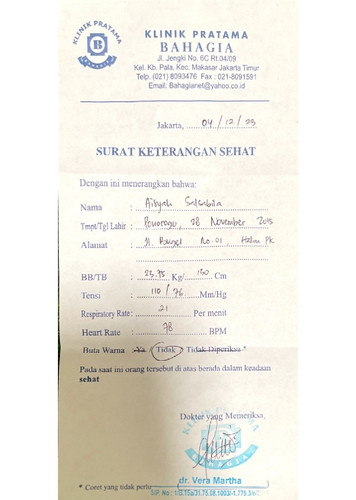 KLINIK PRATAMA
B
BAHAGIA
KLINIK PRATAMA
BAHAGIA
Jl. Jengki No. 6C Rt.04/09
Kel. Kb. Pala, Kec. Makasar Jakarta Timur
Telp. (021) 8093476 Fax : 021-8091591
Email: Bahagianet@yahoo.co.id
Jakarta, 04 / 12 / 23
SURAT KETERANGAN SEHAT
Dengan ini menerangkan bahwa:
Nama : Aisyah Salsabila
Tmpt/Tgl Lahir : Ponorogo, 28 November 2015
Alamat : Jl. No. 01, Halim PK
BB/TB : 23,75 Kg/ 130 Cm
Tensi : 110 / 76 Mm/Hg
Respiratory Rate : 21 Per menit
Heart Rate : 78 BPM
Buta Warna Ya Tidak Tidak Diperiksa *
Pada saat ini orang tersebut di atas berada dalam keadaan
sehat
Dokter yang Memeriksa,
BAHAGIA
dr. Vera Martha
* Coret yang tidak perlu